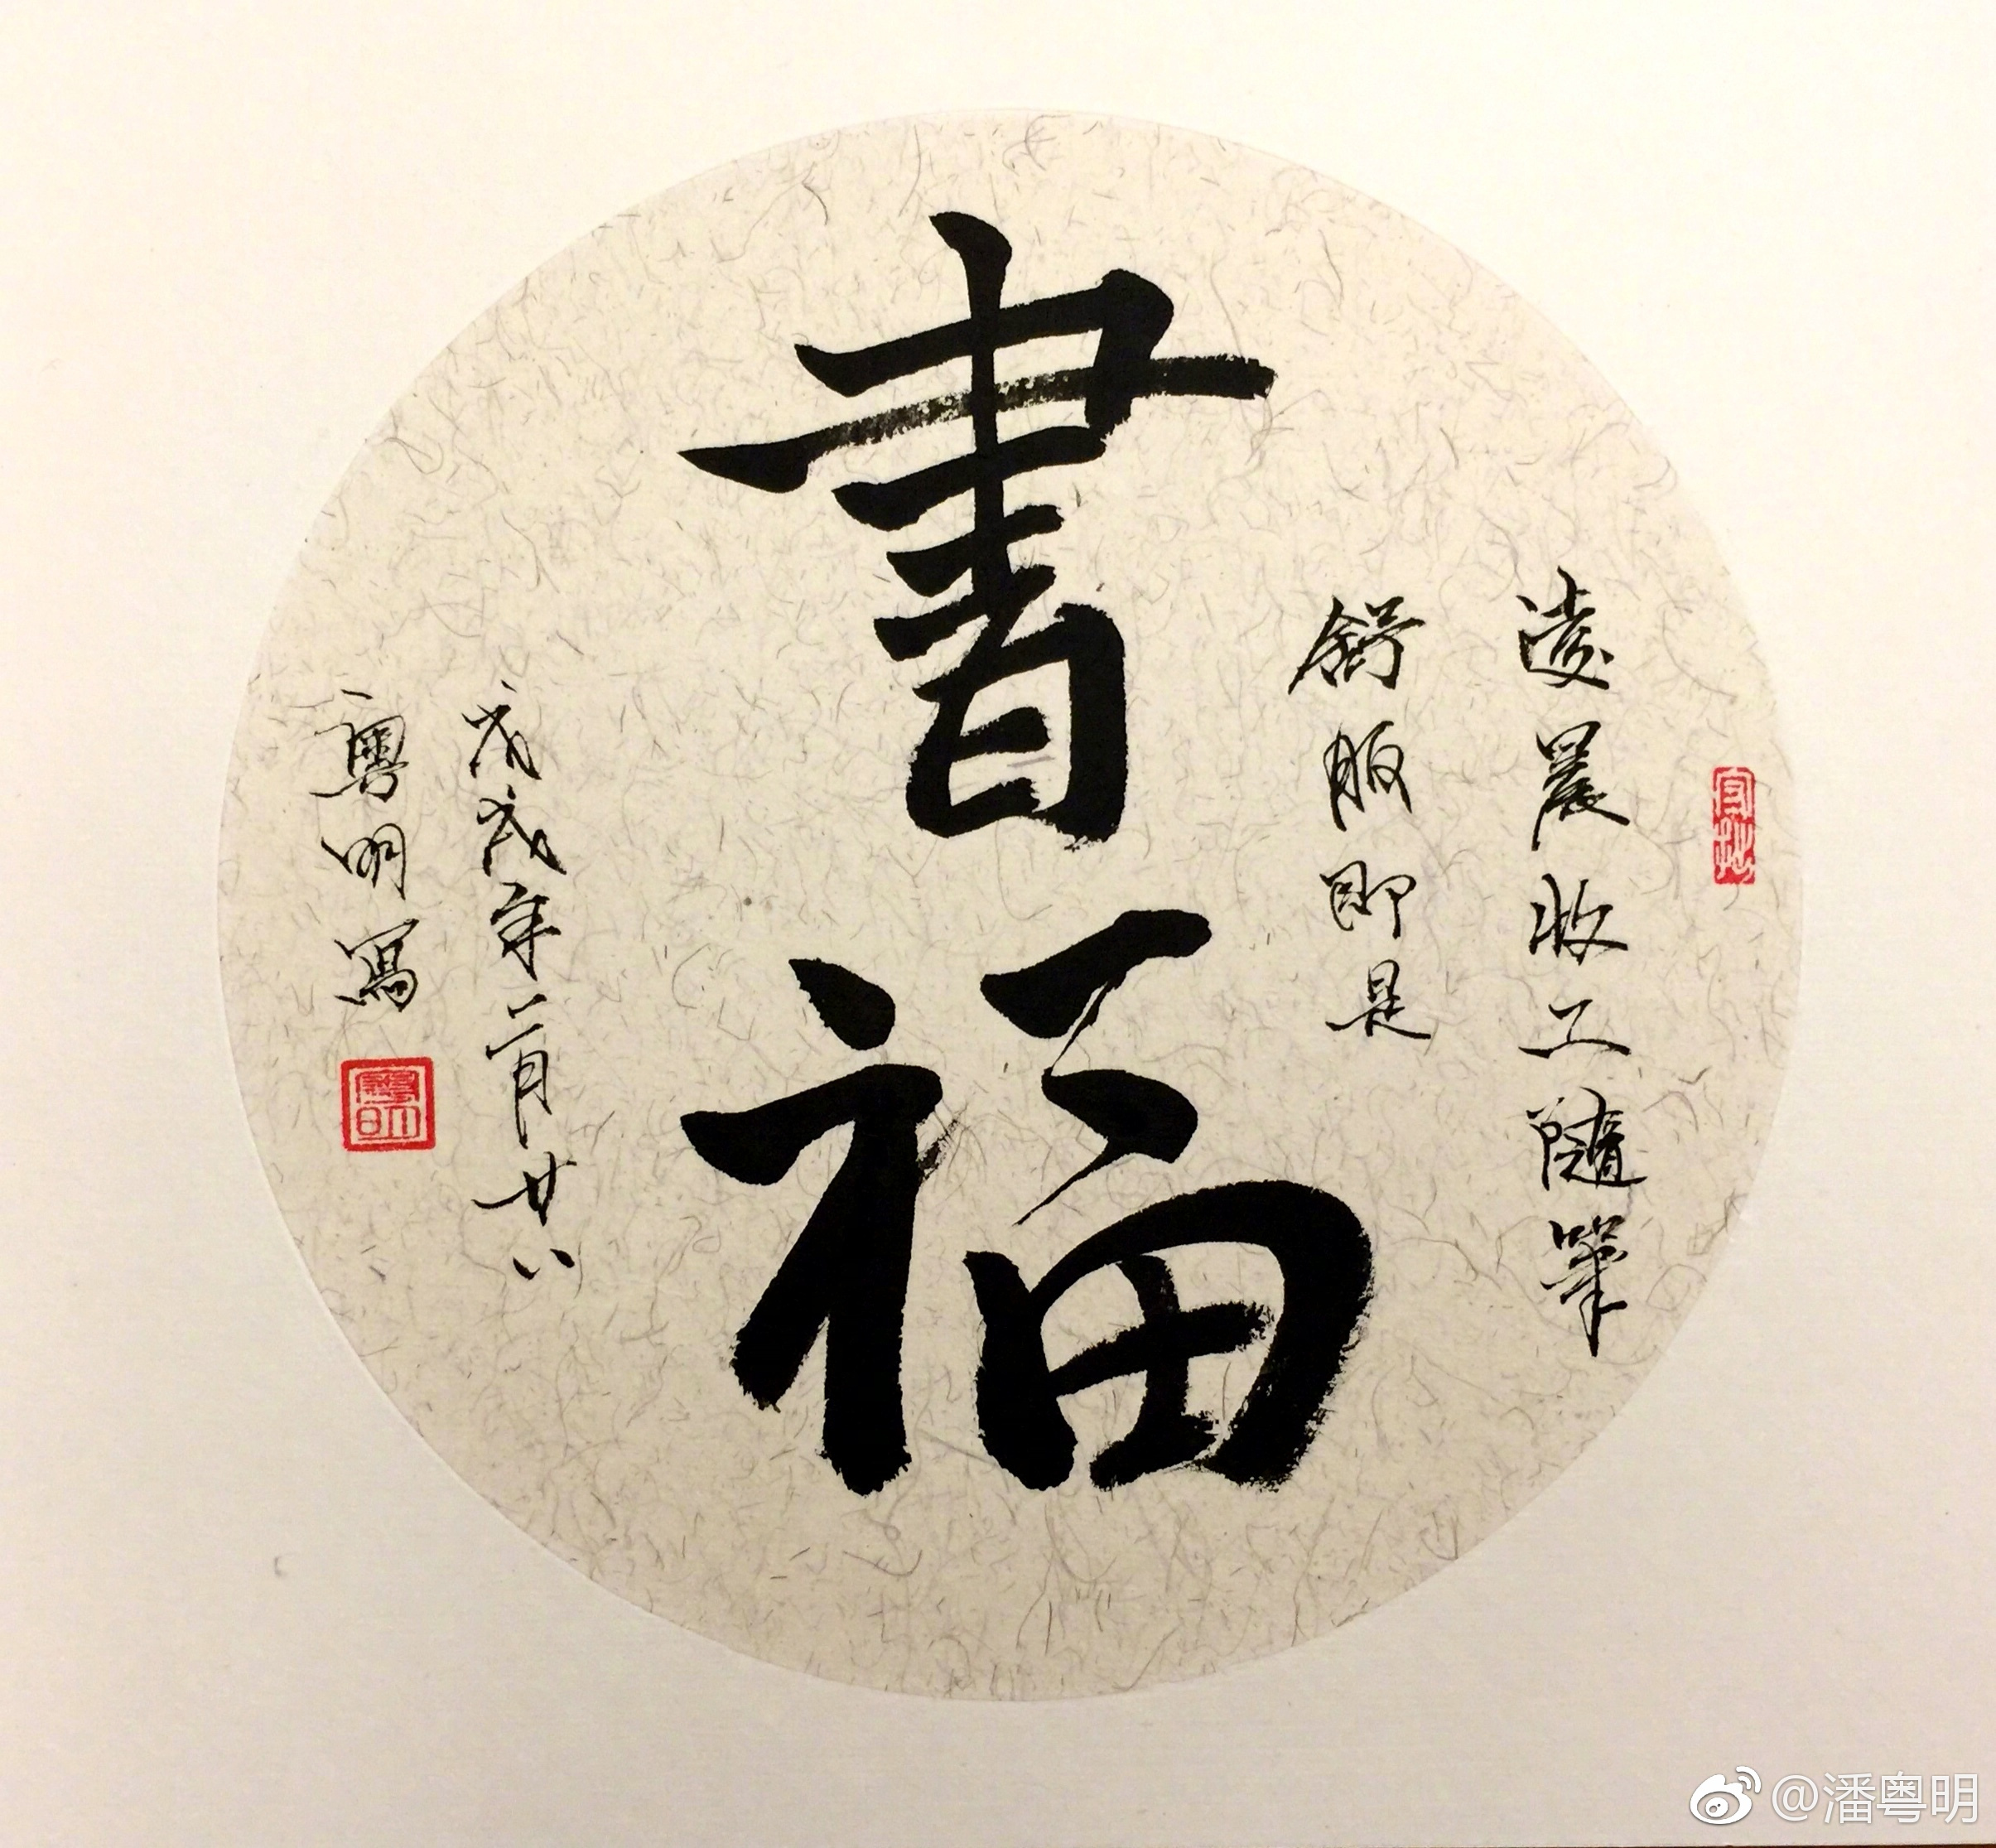 凌晨收工隨筆
舒服即是
書福
戊戌年二月廿八
粵明寫
粵明
@潘粤明